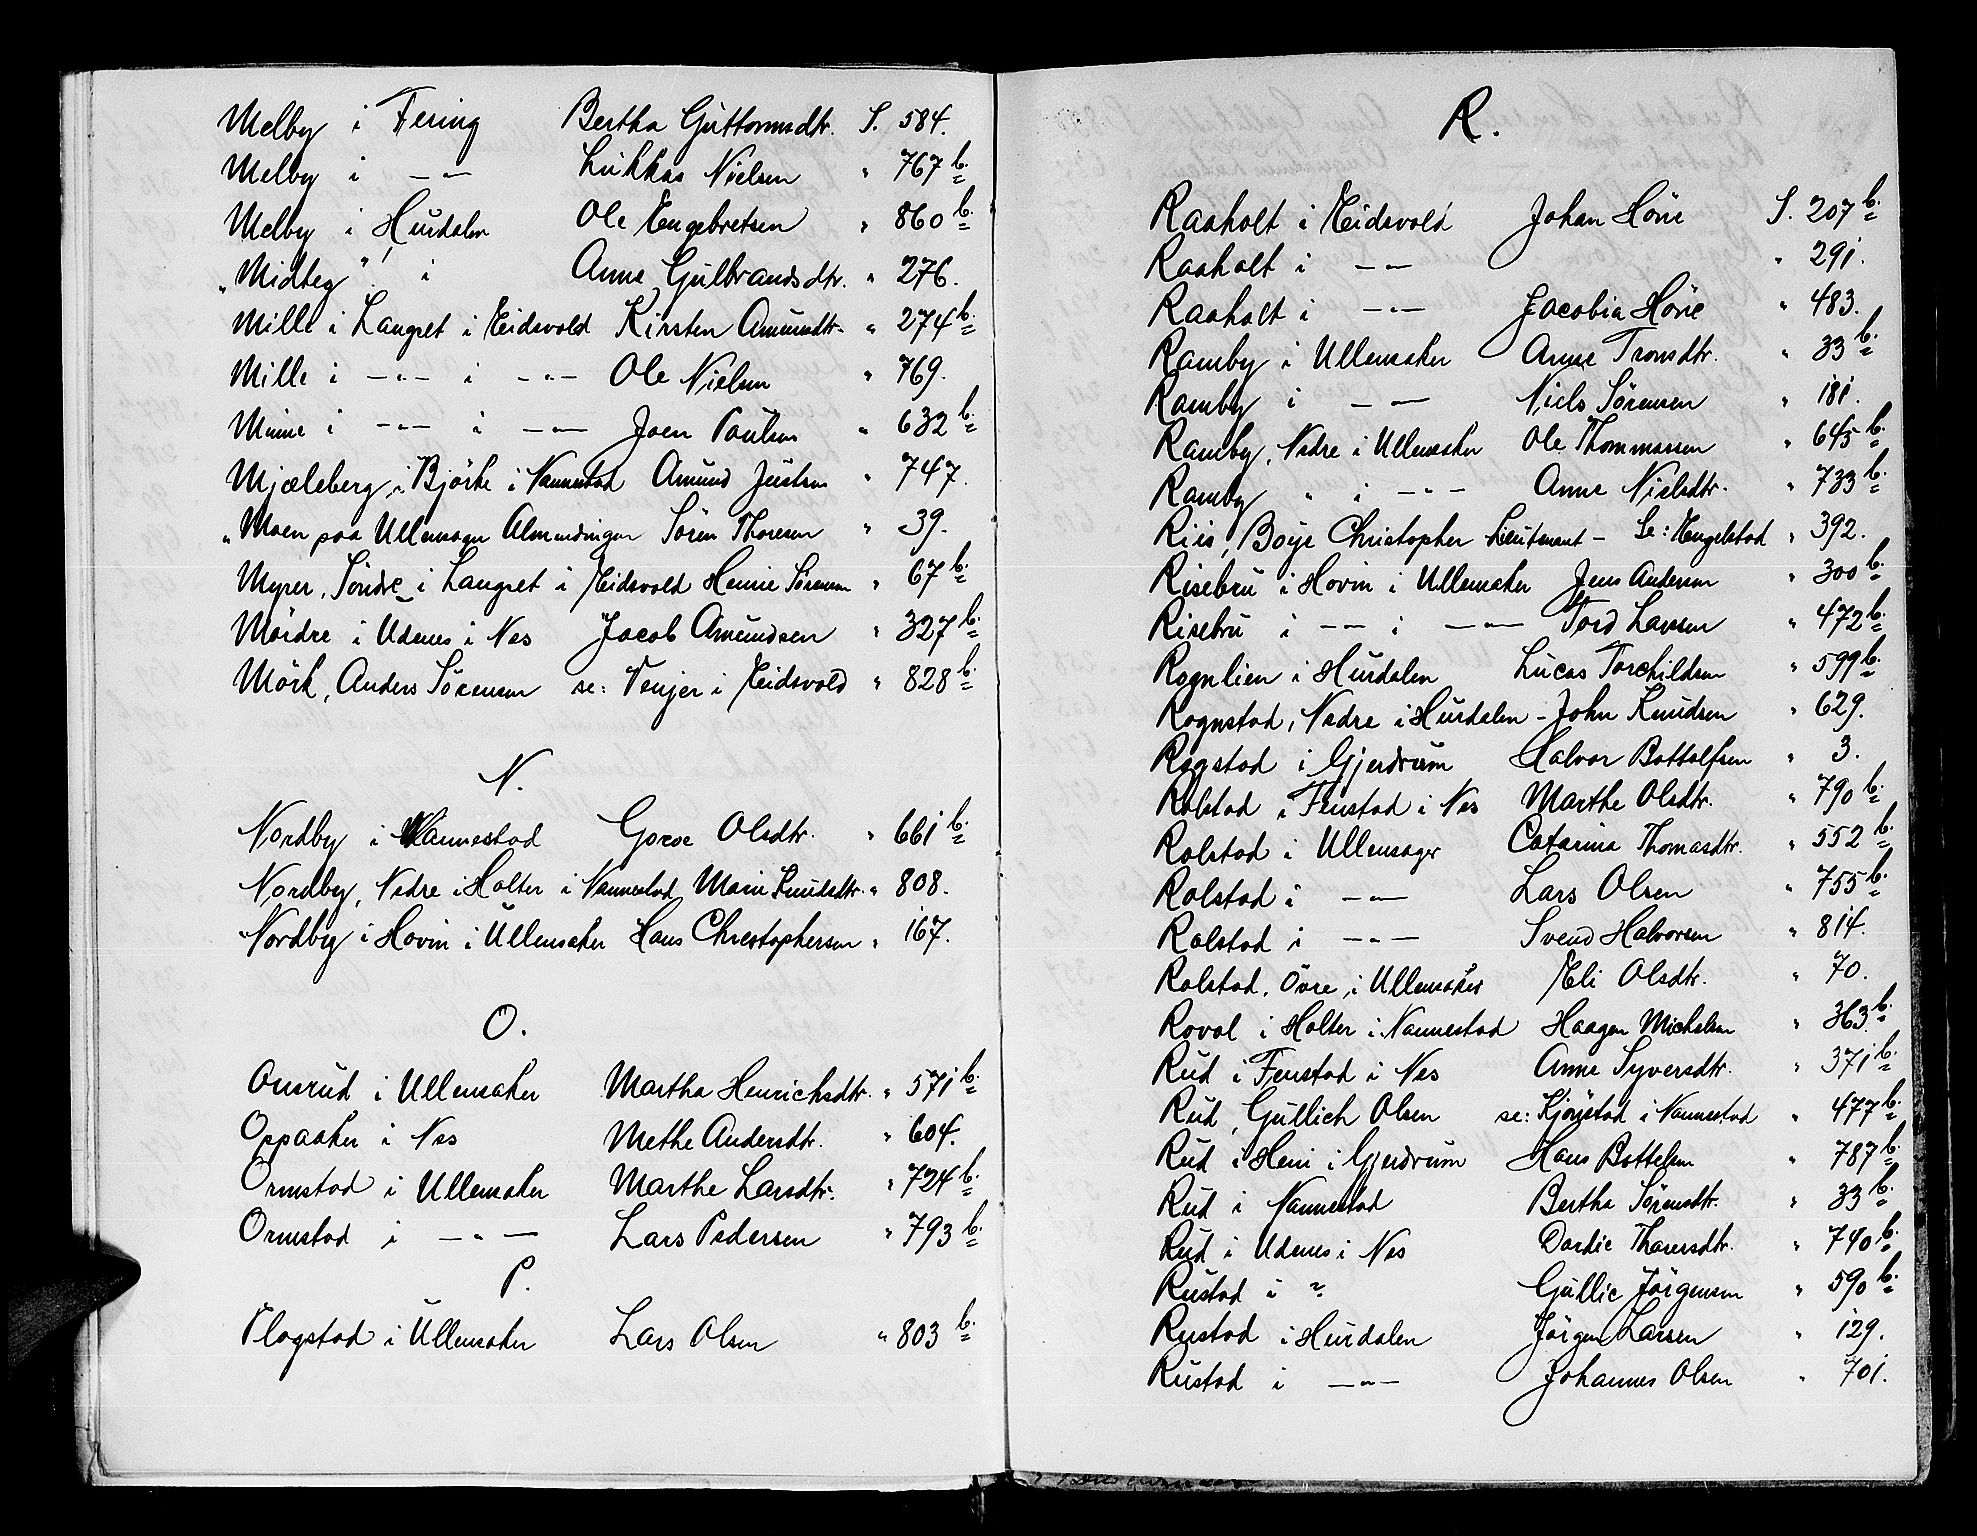 Melby i Fering Bertha Guttormsdtr. S. 584.
Melby i -"- Lukkas Nielsen " 767 b.
Melby i Hurdalen Ole Engebretsen " 860 b.
"Midteg" i Anne Gulbrandsdtr. " 276.
Mille i Langset i Eidsvold Kirsten Amundtr. " 274 b.
Mille i -"- i -"- Ole Nielsen " 769.
Minne i -"- i -"- Joen Paulsen " 632 b.
Mjæleberg i Bjørke i Nannestad Amund Justsen " 747.
"Moen paa Ullensager Almendingen Søren Thoresen " 39.
Myrer, Søndre i Langset i Eidsvold Hennie Sørensen " 67 b.
Mørdre i Udenes i Nes Jacob Amundsen " 327 b.
Mørk, Anders Sørensen se: Venjer i Eidsvold " 828 b.
N.
Nordby i Nannestad Goroe Olsdtr. " 661 b.
Nordby, Nedre i Holter i Nannestad Marie Knudsdtr. " 808.
Nordby i Hovin i Ullensaker Hans Christophersen " 167.
O.
Onsrud i Ullensaker Martha Henrichsdtr. " 571 b.
Oppaaker i Nes Methe Andersdtr. " 604.
Ormstad i Ullensaker Marthe Larsdtr. " 724 b.
Ormstad i -"- Lars Pedersen " 793 b.
P.
Plogstad i Ullensaker Lars Olsen " 803 b.
R.
Raaholt i Eidsvold Johan Hørie S. 207 b.
Raaholt i -"- " 291.
Raaholt i -"- Jacobia Hørie " 483.
Ramby i Ullensaker Anne Tronsdtr. " 33 b.
Ramby i -"- Niels Sørensen " 181.
Ramby, Nedre i Ullensaker Ole Thommassen " 645 b.
Ramby " i -"- Anne Nielsdtr. " 733 b.
Riis, Boye Christopher Lieutenant - Se: Engelstad " 392.
Risebru i Hovin i Ullensaker Jens Andersen " 300 b.
Risebru i -"- i -"- Tord Larsen " 472 b.
Rognlien i Hurdalen Lucas Torchildsen " 599 b.
Rognstad, Nedre i Hurdalen - John Knudsen " 629.
Rogstad i Gjerdrum Halvor Bottolfsen " 3.
Rolstad i Fenstad i Nes Marthe Olsdtr. " 790 b.
Rolstad i Ullensager Catarina Thomasdtr. " 552 b.
Rolstad i -"- Lars Olsen " 755 b.
Rolstad i -"- Svend Halvorsen " 814.
Rolstad, Øvre i Ullensaker Eli Olsdtr. " 70.
Rovol i Holter i Nannestad Haagen Michelsen " 363 b.
Rud i Fenstad i Nes Anne Syversdtr. " 371 b.
Rud, Gullich Olsen se: Kjøistad i Nannestad " 477 b.
Rud i Heni i Gjerdrum Hans Bottelsen " 787 b.
Rud i Nannestad Bertha Sørensdtr. " 33 b.
Rud i Udenes i Nes Dordie Tharersdtr. " 740 b.
Rustad i ? Gullic Jørgensen " 590 b.
Rustad i Hurdalen Jørgen Larsen " 129.
Rustad i -"- Johannes Olsen " 701.